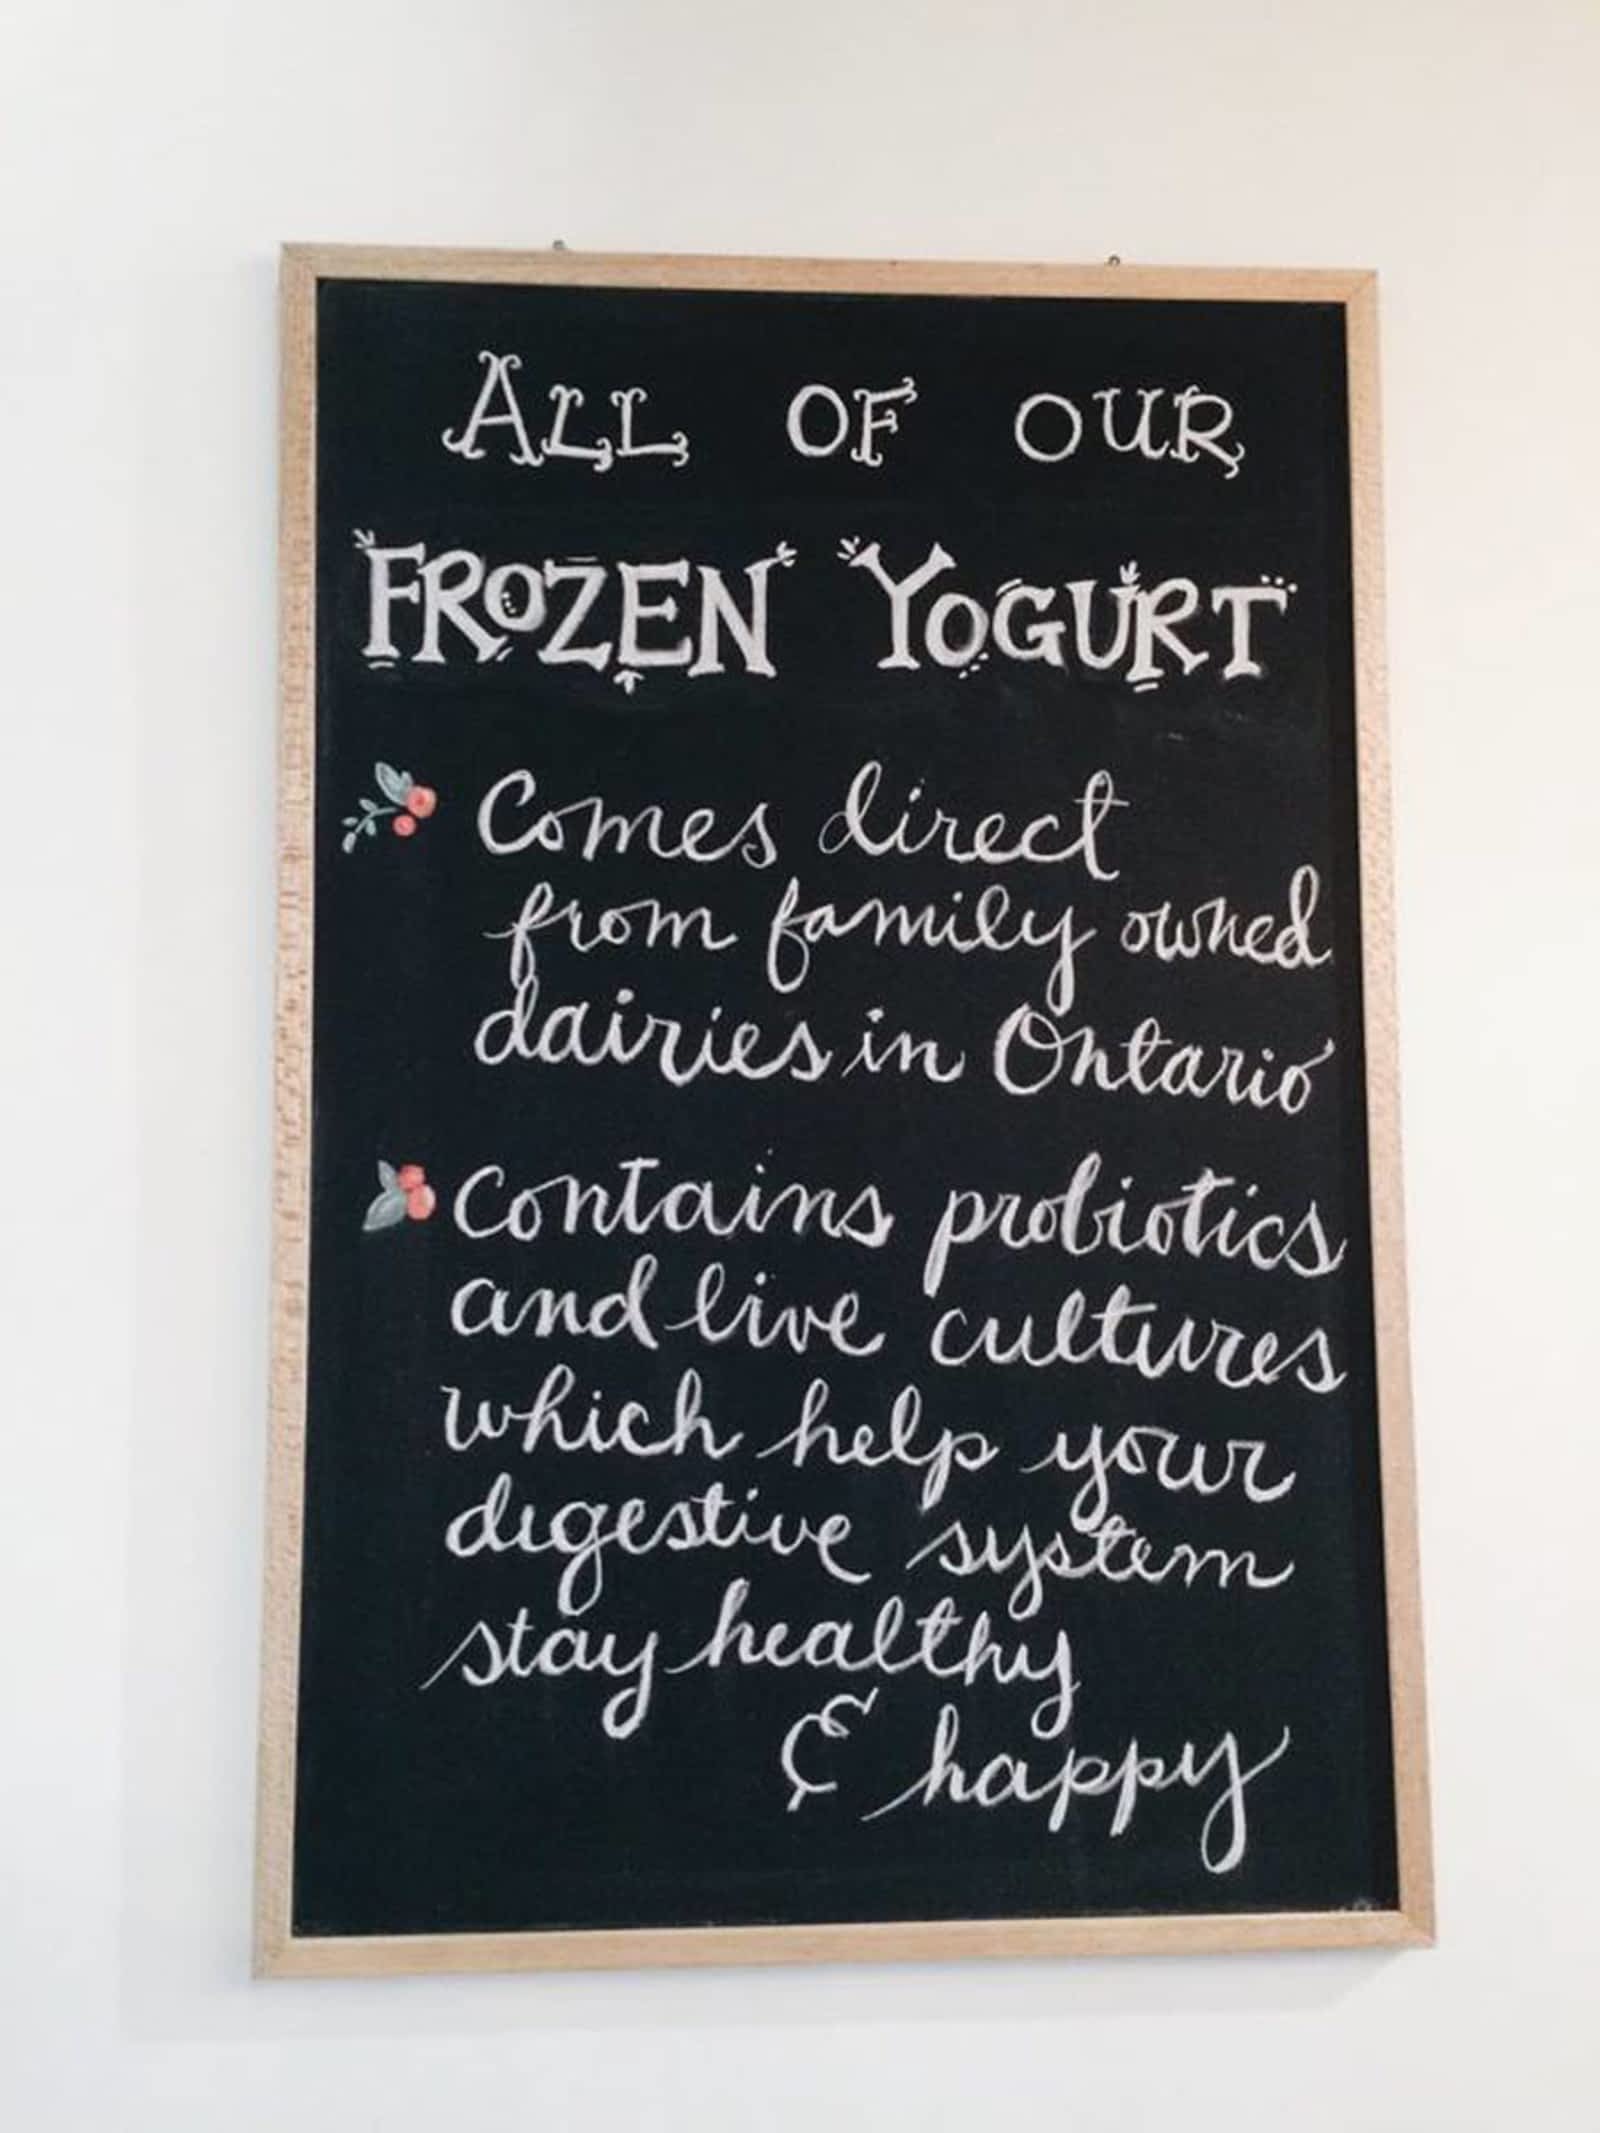 ALL OF OUR
FROZEN YOGURT
Comes direct
from family owned
dairies in Ontario
Contains probiotics
and live cultures
which help your
digestive system
stay healthy
& happy